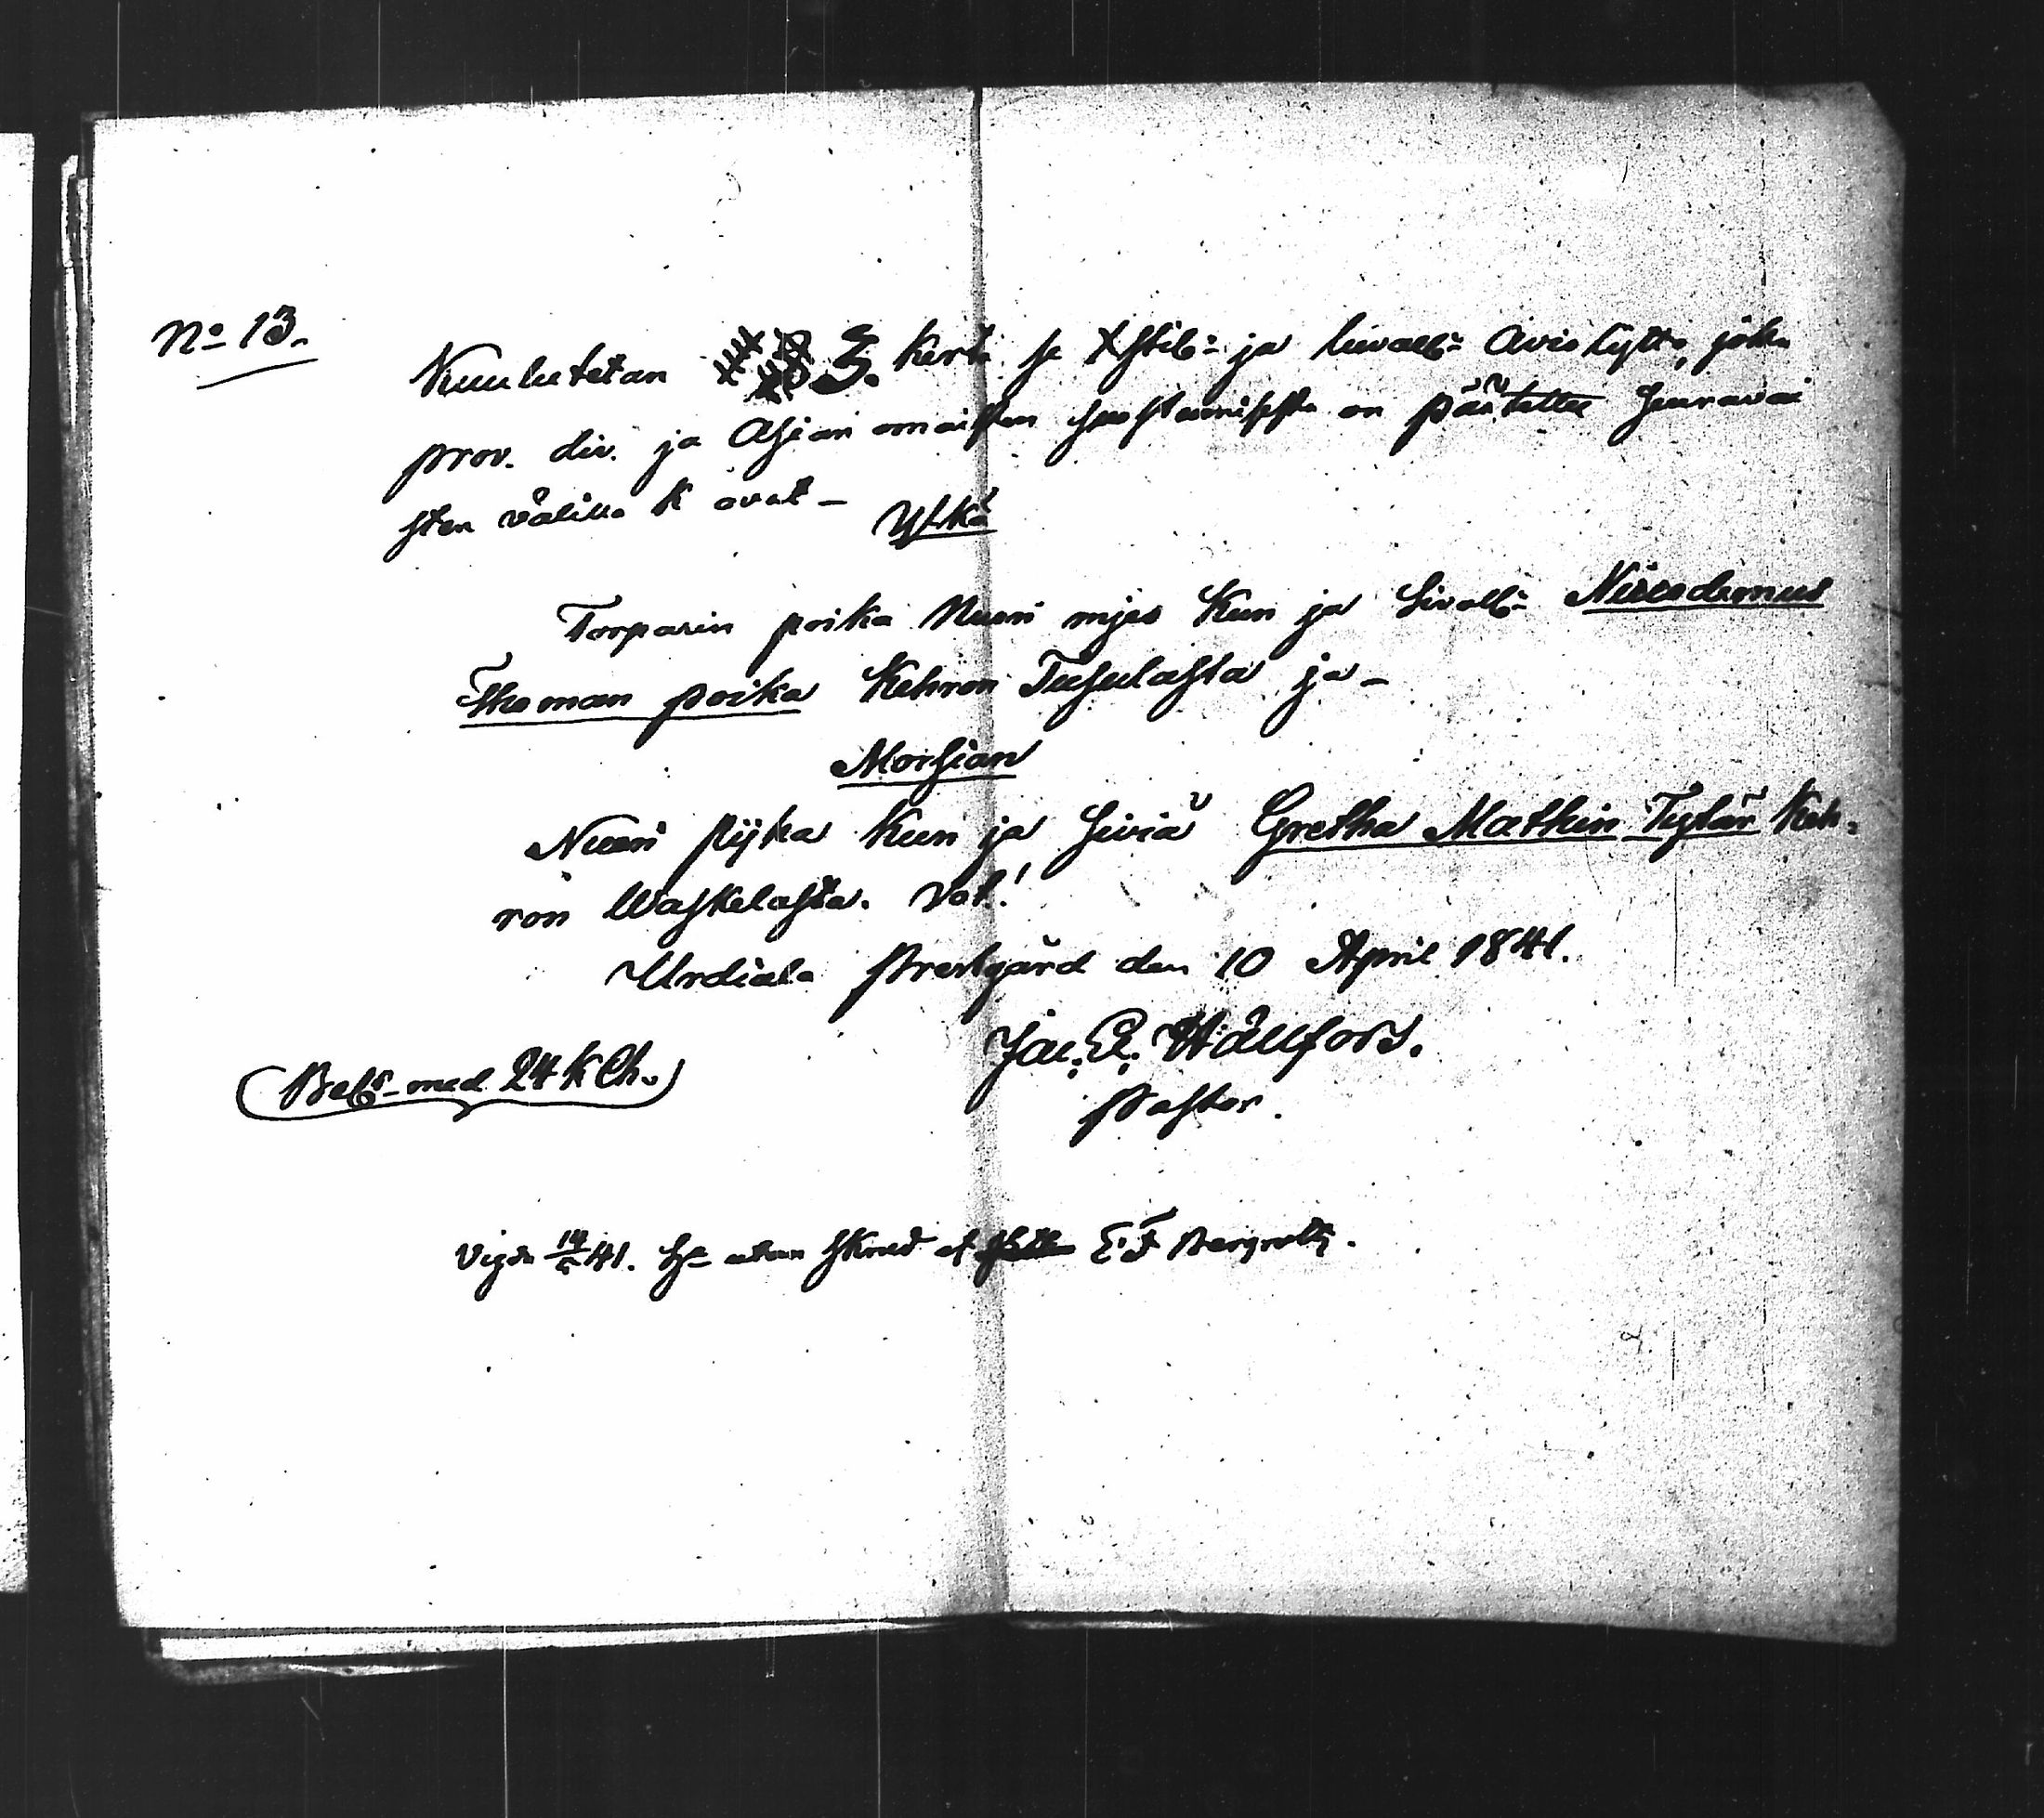 No 13.
Kuulutetan 3. kerta se Xstil: ja luvall: Avio kytto, joka
prov. div. ja Asian omaisten suostumisesta on päätetty seuravai
sten välillä k ovat - Ylkä
Torparin poika Nuori mjes Kun ja Sivall: Nicodemus
Thoman poika Kehron Tusulasta ja -
Morsian
Nuori pijka Kun ja Siviä Gretha Mathin Tytär Keh-
ron Waskelasta. Vot!
Urdiala Prestgård den 10 April 1841.
Jac. E. Wallfors.
Pastor.
(Bet:s med 24 k Ch.)
Vigde 41. utan Skrud af E. F. Bergroth.